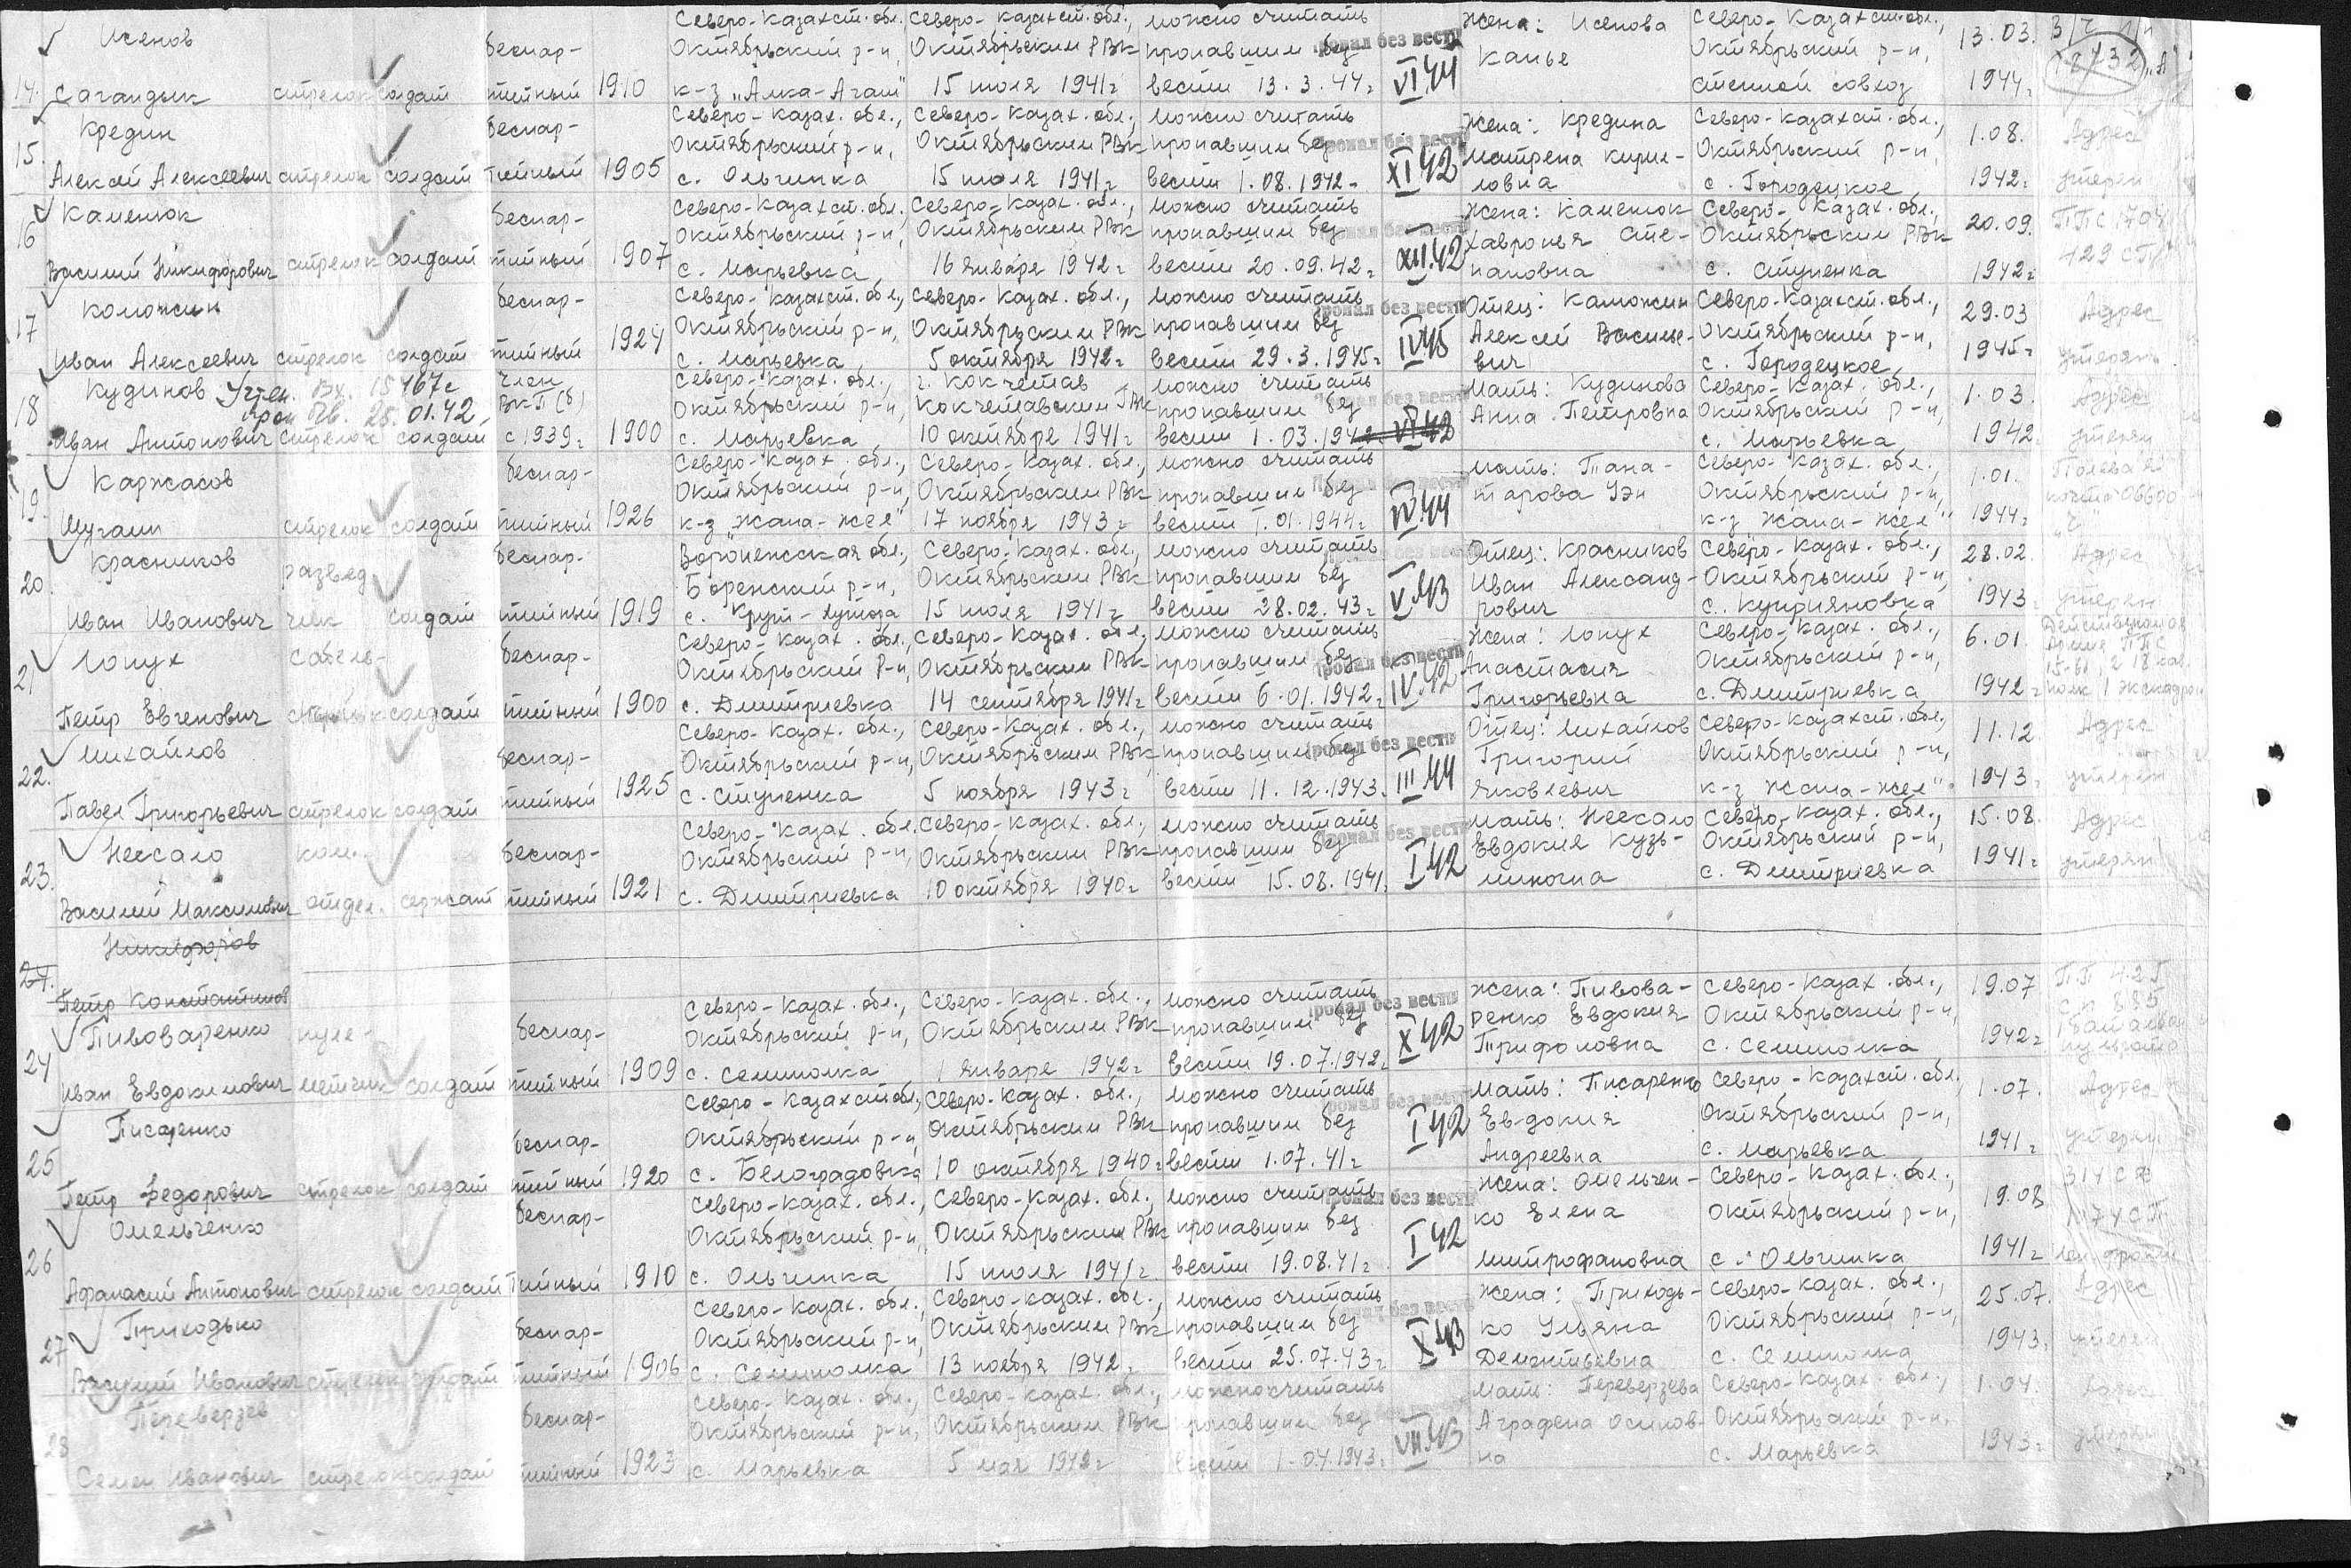 Исенов
беспар-
14. Сагандык стрелок солдат тийный 1910
Северо-Казахст. обл., Северо-Казахст. обл., можно считать
Октябрьский р-н, Октябрьским РВК пропавшим без
к-з „Алка-Агаш" 15 июля 1941г вести 13.3.44г
пропал без вести
VI.44
Жена: Исенова
Канье
Северо-Казахст. обл.,
Октябрьский р-н,
степной совхоз
13.03.
1944г
п/п
18732 „А"
Кредин
беспар-
15. Алексей Алексеевич стрелок солдат тийный 1905
Северо-Казах. обл., Северо-Казах. обл., можно считать
Октябрьский р-н, Октябрьским РВК пропавшим без
с. Ольгинка 15 июля 1941г вести 1.08.1942-
пропал без вести
XI.42
Жена: Кредина
Матрена Кирил-
ловна
Северо-Казахст. обл.,
Октябрьский р-н,
с. Городецкое
1.08.
1942г
Адрес
утерян
Каменюк
беспар-
16 Василий Никифорович стрелок солдат тийный 1907
Северо-Казахст. обл. Северо-Казах. обл., можно считать
Октябрьский р-н, Октябрьским РВК пропавшим без
с. Марьевка 16 января 1942г вести 20.09.42г
пропал без вести
XII.42
Жена: Каменюк
Хавронья Сте-
пановна
Северо-Казах. обл.,
Октябрьским РВК
с. Ступенка
20.09.
1942г
ППС 1704
429 СП
Коложин
беспар-
17 Иван Алексеевич стрелок солдат тийный 1924
Северо-Казахст. обл., Северо-Казах. обл., можно считать
Октябрьский р-н, Октябрьским РВК пропавшим без
с. Марьевка 5 октября 1942г вести 29.3.1945г
пропал без вести
IV.45
Отец: Каложин
Алексей Василье-
вич
Северо-Казахст. обл.,
Октябрьский р-н,
с. Городецкое
29.03
1945г
Адрес
утерян
Кудинов Учтен. Вх. 15467с
25.01.42
член
ВКП(б)
18 Иван Антонович стрелок солдат с 1939г 1900
Северо-Казах. обл., г. Кокчетав можно считать
Октябрьский р-н, Кокчетавским ГВК пропавшим без
с. Марьевка 10 октября 1941г вести 1.03.1942
VI.42
Мать: Кудинова
Анна Петровна
Северо-Казах. обл.,
Октябрьский р-н,
с. Марьевка
1.03.
1942
Адрес
утерян
Каржасов
беспар-
19. Шугаип стрелок солдат тийный 1926
Северо-Казах. обл., Северо-Казах. обл., можно считать
Октябрьский р-н, Октябрьским РВК пропавшим без
к-з „Жана-Жел" 17 ноября 1943г вести 1.01.1944г
IV.44
Мать: Тана-
тарова Уэн
Северо-Казах. обл.,
Октябрьский р-н,
к-з Жана-Жел"
1.01.
1944г
Полевая
почта 06600
Красников
развед беспар-
20. Иван Иванович чик солдат тийный 1919
Воронежская обл., Северо-Казах. обл., можно считать
Боренский р-н, Октябрьским РВК пропавшим без
с. Крут-Хутора 15 июля 1941г вести 28.02.43г
V.43
Отец: Красников
Иван Александ-
рович
Северо-Казах. обл.,
Октябрьский р-н,
с. Куприяновка
28.02.
1943г
Адрес
утерян
Лопух
сабель- беспар-
21 Петр Евгенович солдат тийный 1900
Северо-Казах. обл., Северо-Казах. обл., можно считать
Октябрьский р-н, Октябрьским РВК пропавшим без
с. Дмитриевка 14 сентября 1941г вести 6.01.1942г
пропал без вести
IV.42
Жена: Лопух
Анастасия
Григорьевна
Северо-Казах. обл.,
Октябрьский р-н,
с. Дмитриевка
6.01.
1942г
Действующая
Армия ППС
полк 1 эскадрон
Михайлов
беспар-
22. Павел Григорьевич стрелок солдат тийный 1925
Северо-Казах. обл., Северо-Казах. обл., можно считать
Октябрьский р-н, Октябрьским РВК пропавшим без
с. Ступенка 5 ноября 1943г вести 11.12.1943.
пропал без вести
III.44
Отец: Михайлов
Григорий
Яковлевич
Северо-Казахст. обл.,
Октябрьский р-н,
к-з Жана-Жел"
11.12
1943г
Адрес
утерян
Нехсало
ком. беспар-
23. Василий Максимович отдел. сержант тийный 1921
Северо-Казах. обл. Северо-Казах. обл., можно считать
Октябрьский р-н, Октябрьским РВК пропавшим без
с. Дмитриевка 10 октября 1940г вести 15.08.1941г
пропал без вести
I.42
Мать: Нехсало
Евдокия Кузь-
минична
Северо-Казах. обл.,
Октябрьский р-н,
с. Дмитриевка
15.08.
1941г
Адрес
утерян
Никифоров
24. Петр Константинов
Пивоваренко пуле- беспар-
24 Иван Евдокимович метчик солдат тийный 1909
Северо-Казах. обл., Северо-Казах. обл., можно считать
Октябрьский р-н, Октябрьским РВК пропавшим без
с. Семиполка 1 января 1942г вести 19.07.1942г
пропал без вести
X.42
Жена: Пивова-
ренко Евдокия
Трифоловна
Северо-Казах. обл.,
Октябрьский р-н,
с. Семиполка
19.07
1942г
СП 885
Писаренко
беспар-
25 Петр Федорович стрелок солдат тийный 1920
Северо-Казахст. обл., Северо-Казах. обл., можно считать
Октябрьский р-н, Октябрьским РВК пропавшим без
с. Белоградовка 10 октября 1940г вести 1.07.41г
пропал без вести
I.42
Мать: Писаренко
Евдокия
Андреевна
Северо-Казахст. обл.
Октябрьский р-н,
с. Марьевка
1.07.
1941г
Адрес
утерян
Омельченко
беспар-
26 Афанасий Антонович стрелок солдат тийный 1910
Северо-Казах. обл., Северо-Казах. обл., можно считать
Октябрьский р-н, Октябрьским РВК пропавшим без
с. Ольгинка 15 июля 1941г вести 19.08.41г
пропал без вести
I.42
Жена: Омельчен-
ко Елена
Митрофановна
Северо-Казах. обл.,
Октябрьский р-н,
с. Ольгинка
19.08
1941г
314 СД
Лен. фронт
Приходько
беспар-
27 Василий Иванович стрелок солдат тийный 1906
Северо-Казах. обл., Северо-Казах. обл., можно считать
Октябрьский р-н, Октябрьским РВК пропавшим без
с. Семиполка 13 ноября 1942г вести 25.07.43г
пропал без вести
X.43
Жена: Приходь-
ко Ульяна
Дементьевна
Северо-Казах. обл.,
Октябрьский р-н,
с. Семиполка
25.07.
1943г
Адрес
утерян
Переверзев
беспар-
28 Семен Иванович стрелок солдат тийный 1923
Северо-Казах. обл., Северо-Казах. обл., можно считать
Октябрьский р-н, Октябрьским РВК пропавшим без
с. Марьевка 5 мая 1942г вести 1.04.1943г
VII.43
Мать: Переверзева
Аграфена Осипов-
на
Северо-Казах. обл.,
Октябрьский р-н,
с. Марьевка
1.04.
1943г
Адрес
утерян